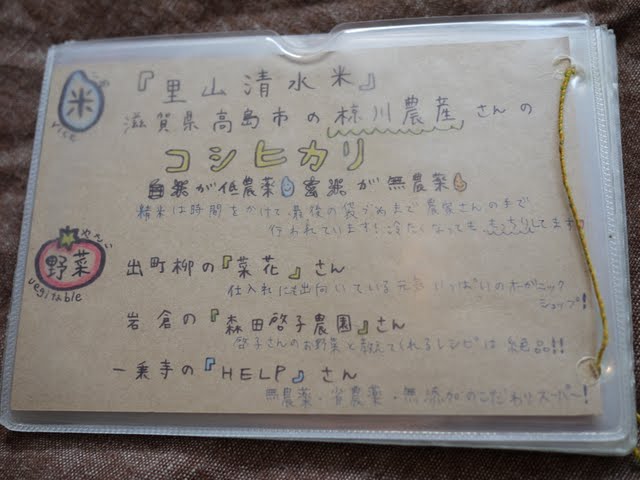 こめ
米
rice
『里山清水米』
滋賀県高島市の椋川農産さんの
コシヒカリ
が低農薬 が無農薬
精米は時間をかけて、最後の袋づめまで農家さんの手で
行われています!冷たくなってももっちりしてます
やさい
野菜
vegitable
出町柳の『菜花』さん
仕入れにも出向いている元気いっぱいのオーガニック
ショップ!
岩倉の『森田啓子農園』さん
啓子さんのお野菜と教えてくれるレシピは絶品!!
一乗寺の『HELP』さん
無農薬・省農薬・無添加のこだわりスーパー!